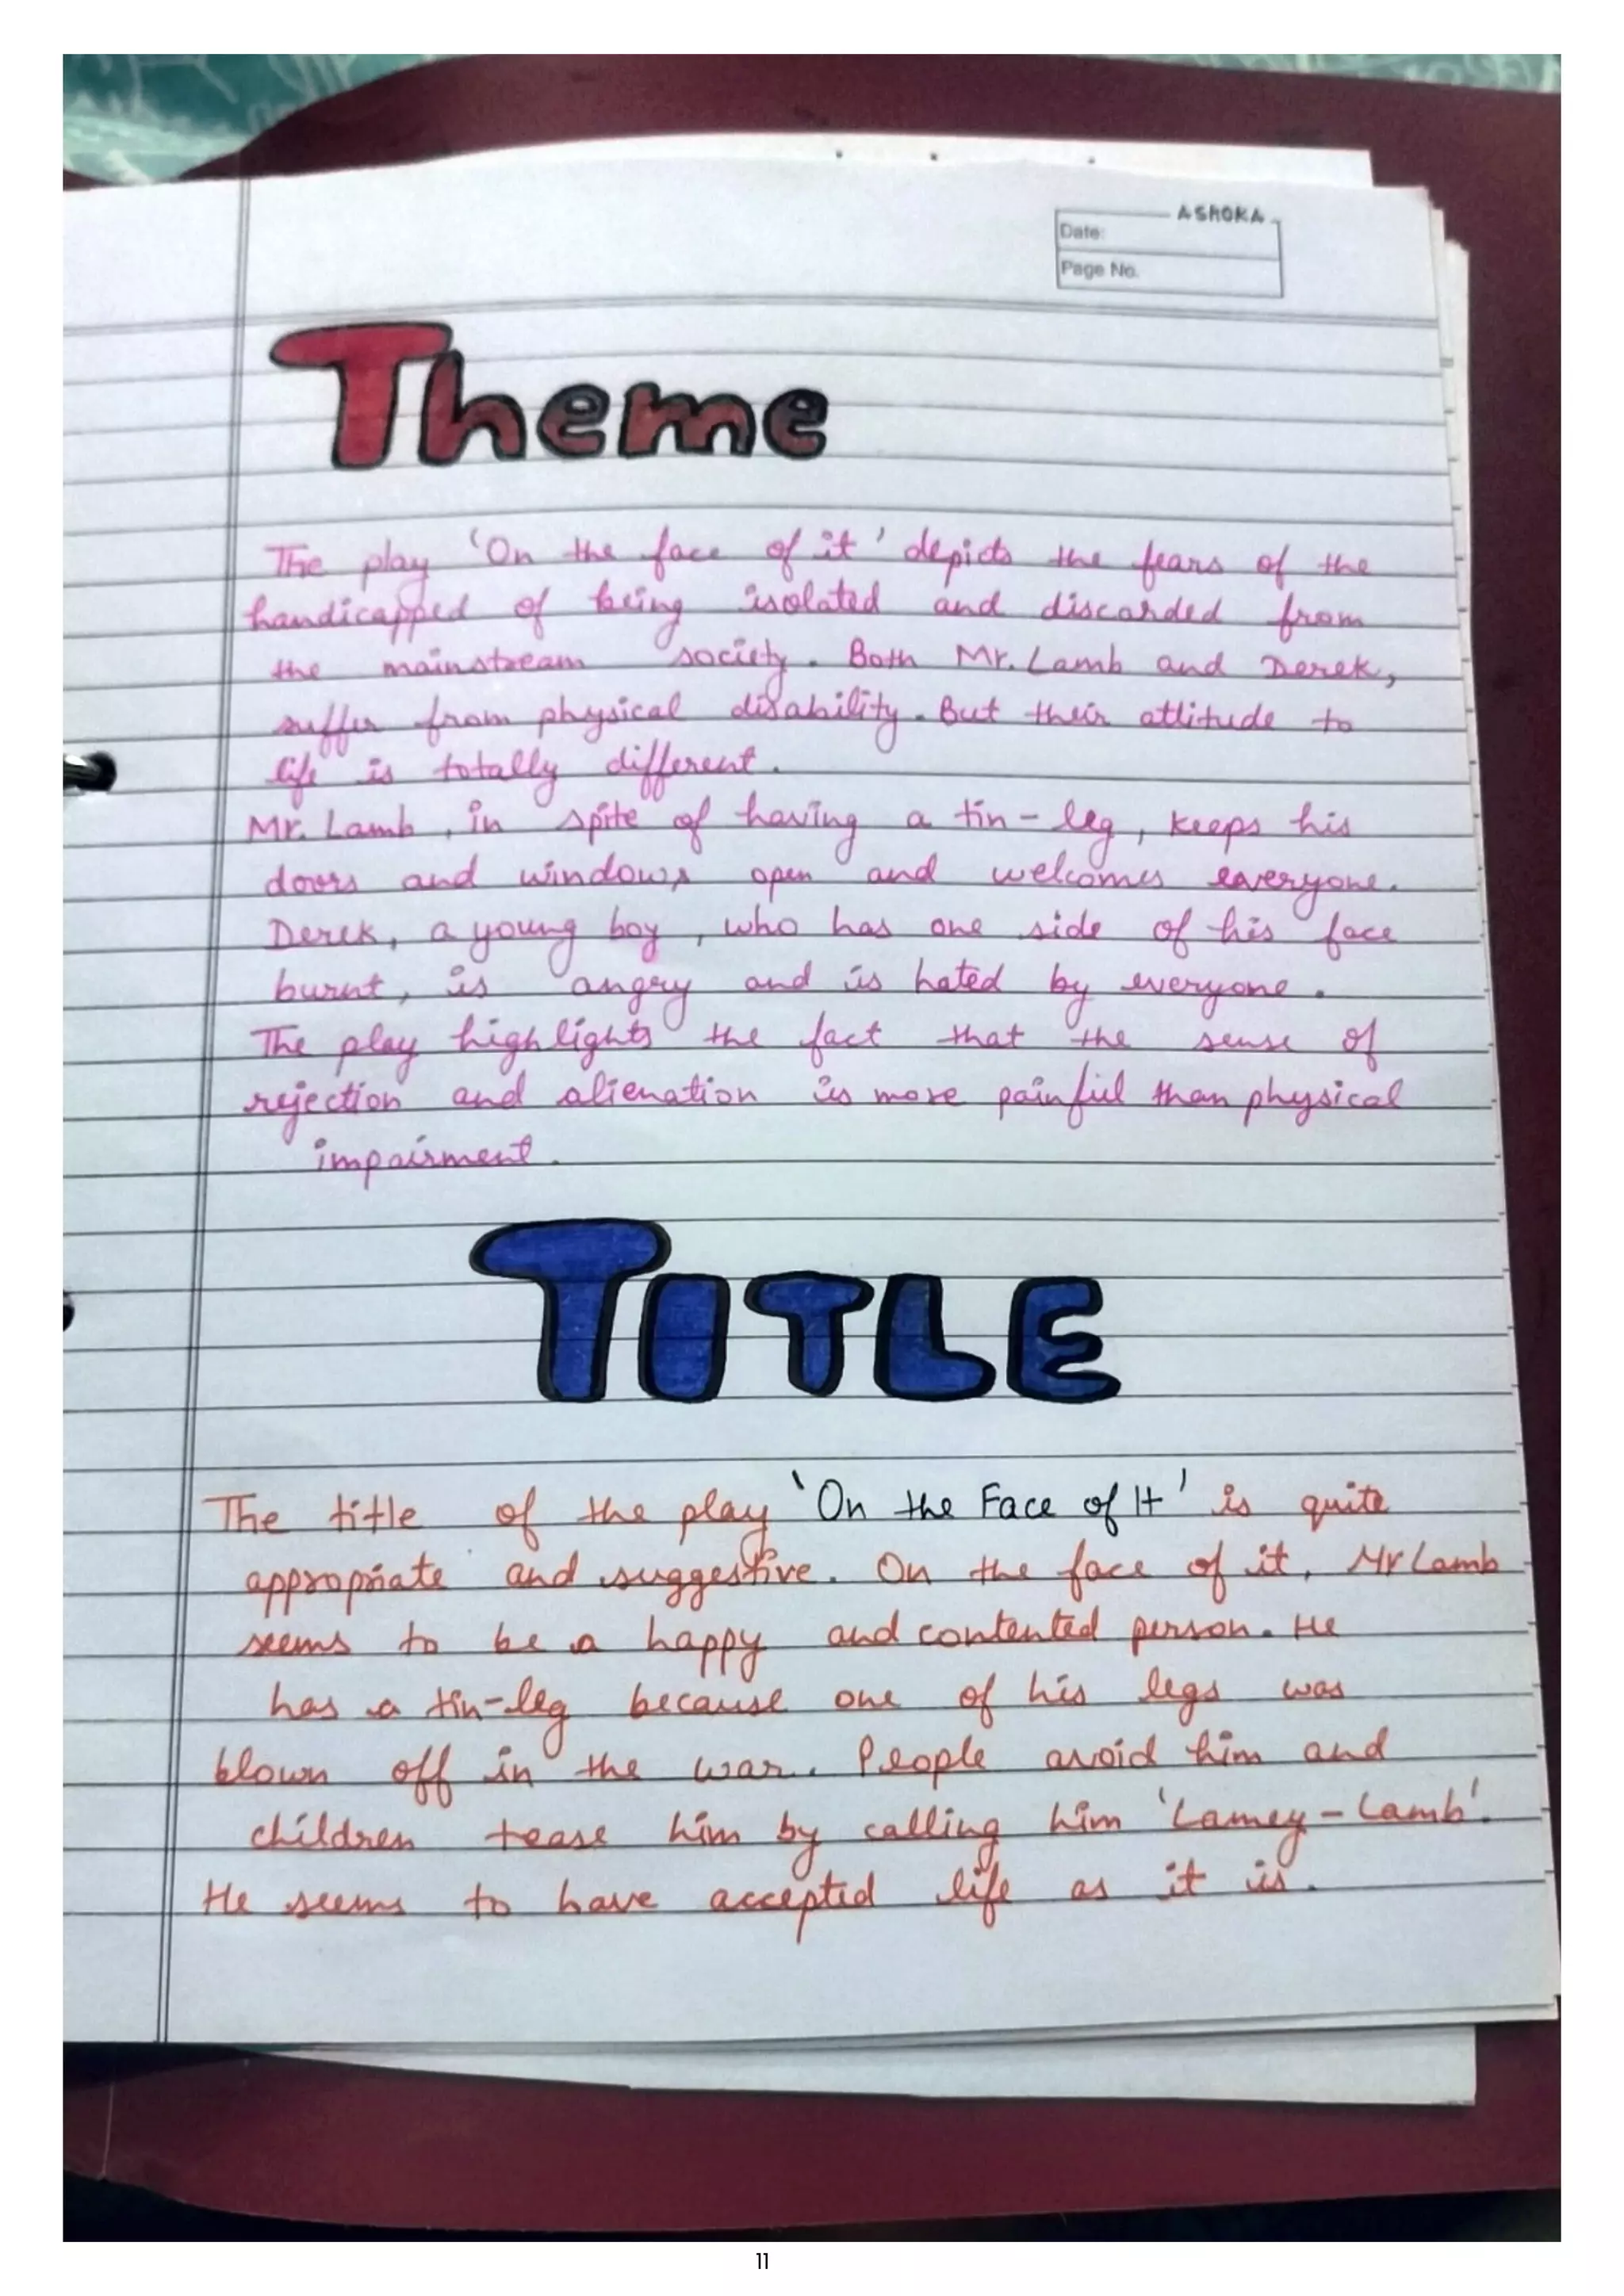 ASHOKA
Date:
Page No.
Theme
The play 'On the face of it' depicts the fears of the
handicapped of being isolated and discarded from
the mainstream society. Both Mr. Lamb and Derek,
suffer from physical disability. But their attitude to
life is totally different.
Mr. Lamb, in spite of having a tin-leg, keeps his
doors and windows open and welcomes everyone.
Derek, a young boy, who has one side of his face
burnt, is angry and is hated by everyone.
The play highlights the fact that the sense of
rejection and alienation is more painful than physical
impairment.
TITLE
The title of the play 'On the Face of It' is quite
appropriate and suggestive. On the face of it, Mr Lamb
seems to be a happy and contented person. He
has a tin-leg because one of his legs was
blown off in the war. People avoid him and
children tease him by calling him 'Lamey-Lamb'.
He seems to have accepted life as it is.
11